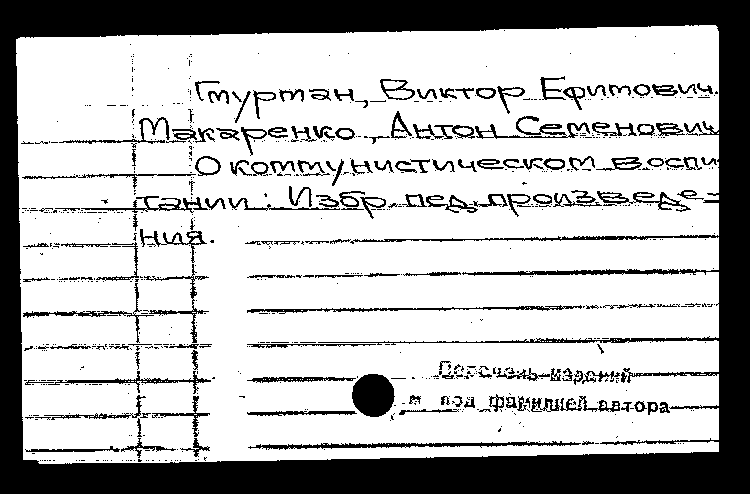 Гмурман, Виктор Ефимович.
Макаренко, Антон Семенович
О коммунистическом воспи-
тании: Избр. пед. произведе-
ния.
Перечень изданий
под фамилией автора